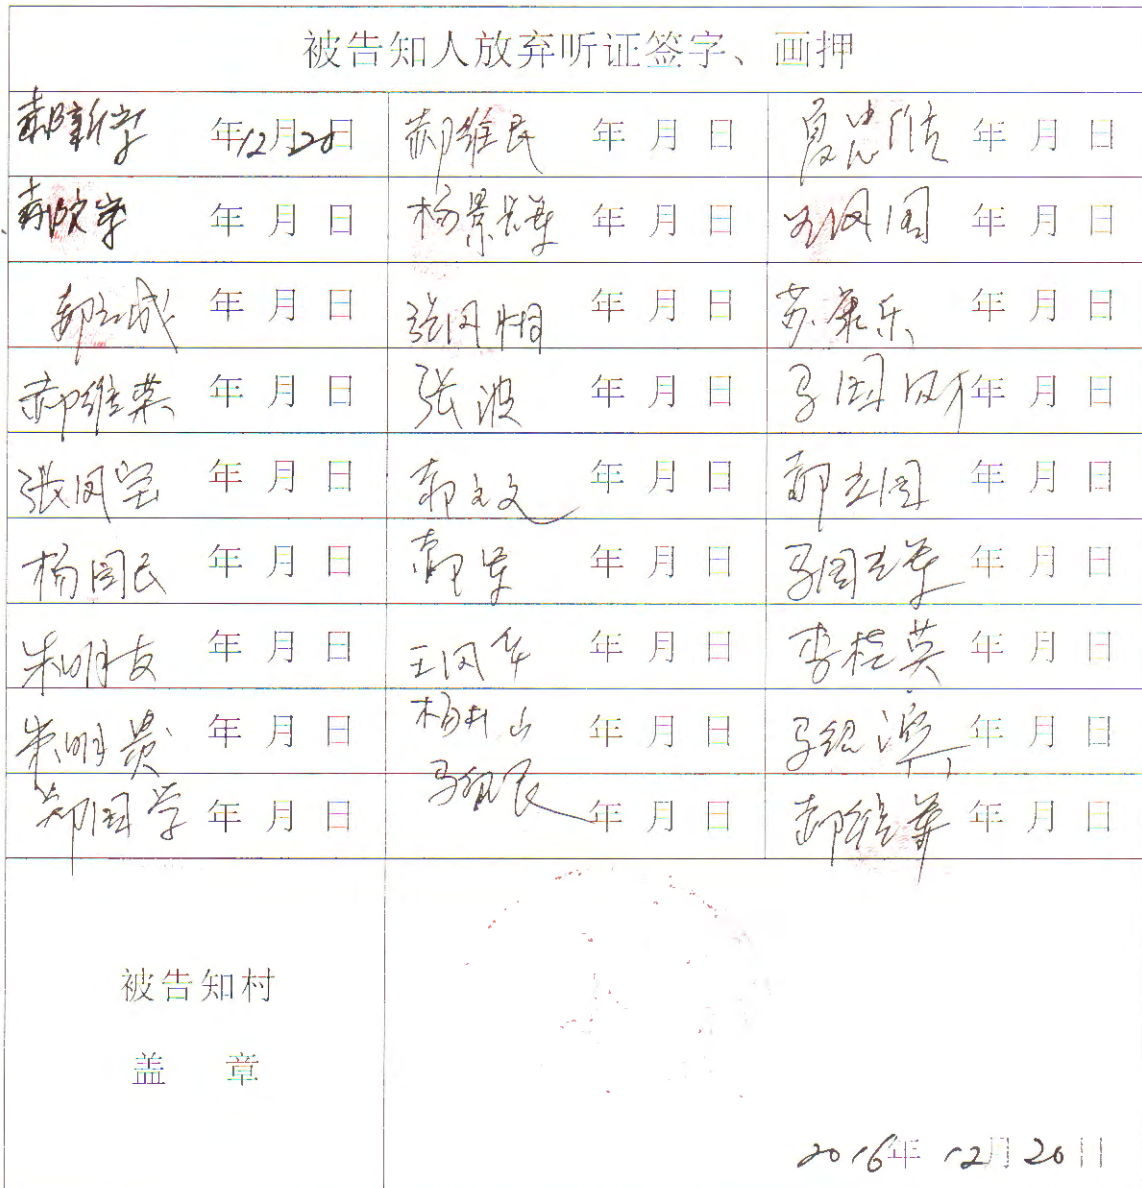 被告知人放弃听证签字、画押
郝新学 年12月20日 郝维民 年 月 日 夏忠信 年 月 日
年 月 日 杨景军 年 月 日 国 年 月 日
郝立成 年 月 日 张凤桐 年 月 日 苏来乐 年 月 日
郝维荣 年 月 日 张波 年 月 日 马国凤 年 月 日
张凤宝 年 月 日 郝立文 年 月 日 郝立国 年 月 日
杨国民 年 月 日 郝军 年 月 日 马国军 年 月 日
朱明友 年 月 日 王凤华 年 月 日 李桂英 年 月 日
朱明贵 年 月 日 杨山 年 月 日 马绍 年 月 日
郑国学 年 月 日 马民 年 月 日 郝维华 年 月 日
被告知村
盖 章
2016年 12月 20日